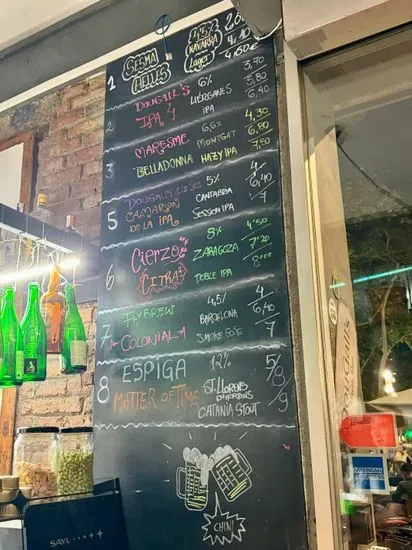 1 SESMA 4,5% 2,80
HELLES NAVARRA 4,10
Lager 4,60€
2 DOUGALL'S 6% 3,70
IPA 4 LIÉRGANES 5,80
IPA 6,40
3 MARESME 6,6% 4,30
BELLADONNA MONTGAT 6,80
HAZY IPA 7,50
5 DOUGALLS 5% 4
CAMARÓN CANTABRIA 6,40
DE LA IPA SESSION IPA 7
6 CIERZO 8% 4,50
CITRA ZARAGOZA 7,20
DOBLE IPA 8,00
7 FLYBREW 4,5% 4
COLONIAL BARCELONA 6,40
7
8 ESPIGA 12% 5/8/9
MATTER OF TIME ST. LLORENS
D'HORTONS
CATANIA STOUT
CHIN!
SAYL
AMERICAN
EXPRESS